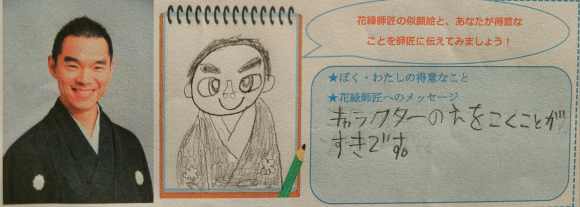 花緑師匠の似顔絵と、あなたが得意な
ことを師匠に伝えてみましょう！
★ぼく・わたしの得意なこと
★花緑師匠へのメッセージ
キャラクターのえをこくことが
すきです。